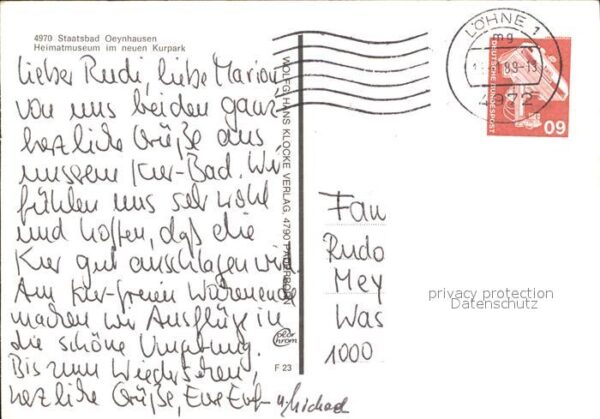 4970 Staatsbad Oeynhausen
Heimatmuseum im neuen Kurpark
Lieber Rudi, liebe Marion
von uns beiden ganz
herzliche Grüße aus
unserem Kur-Bad. Wir
fühlen uns sehr wohl
und hoffen, daß die
Kur gut anschlagen wird.
Am Kur-freien Wochenende
machen wir Ausflüge in
die schöne Umgebung.
Bis zum Wiedersehen,
herzliche Grüße, Eure
u. Michael
WOLFGANG HANS KLOCKE VERLAG, 4790 PADERBORN
color
chrom
F 23
LÖHNE 1
mg
89-13
4972
DEUTSCHE BUNDESPOST
60
Fam
Rudo
Mey
Was
1000
privacy protection
Datenschutz